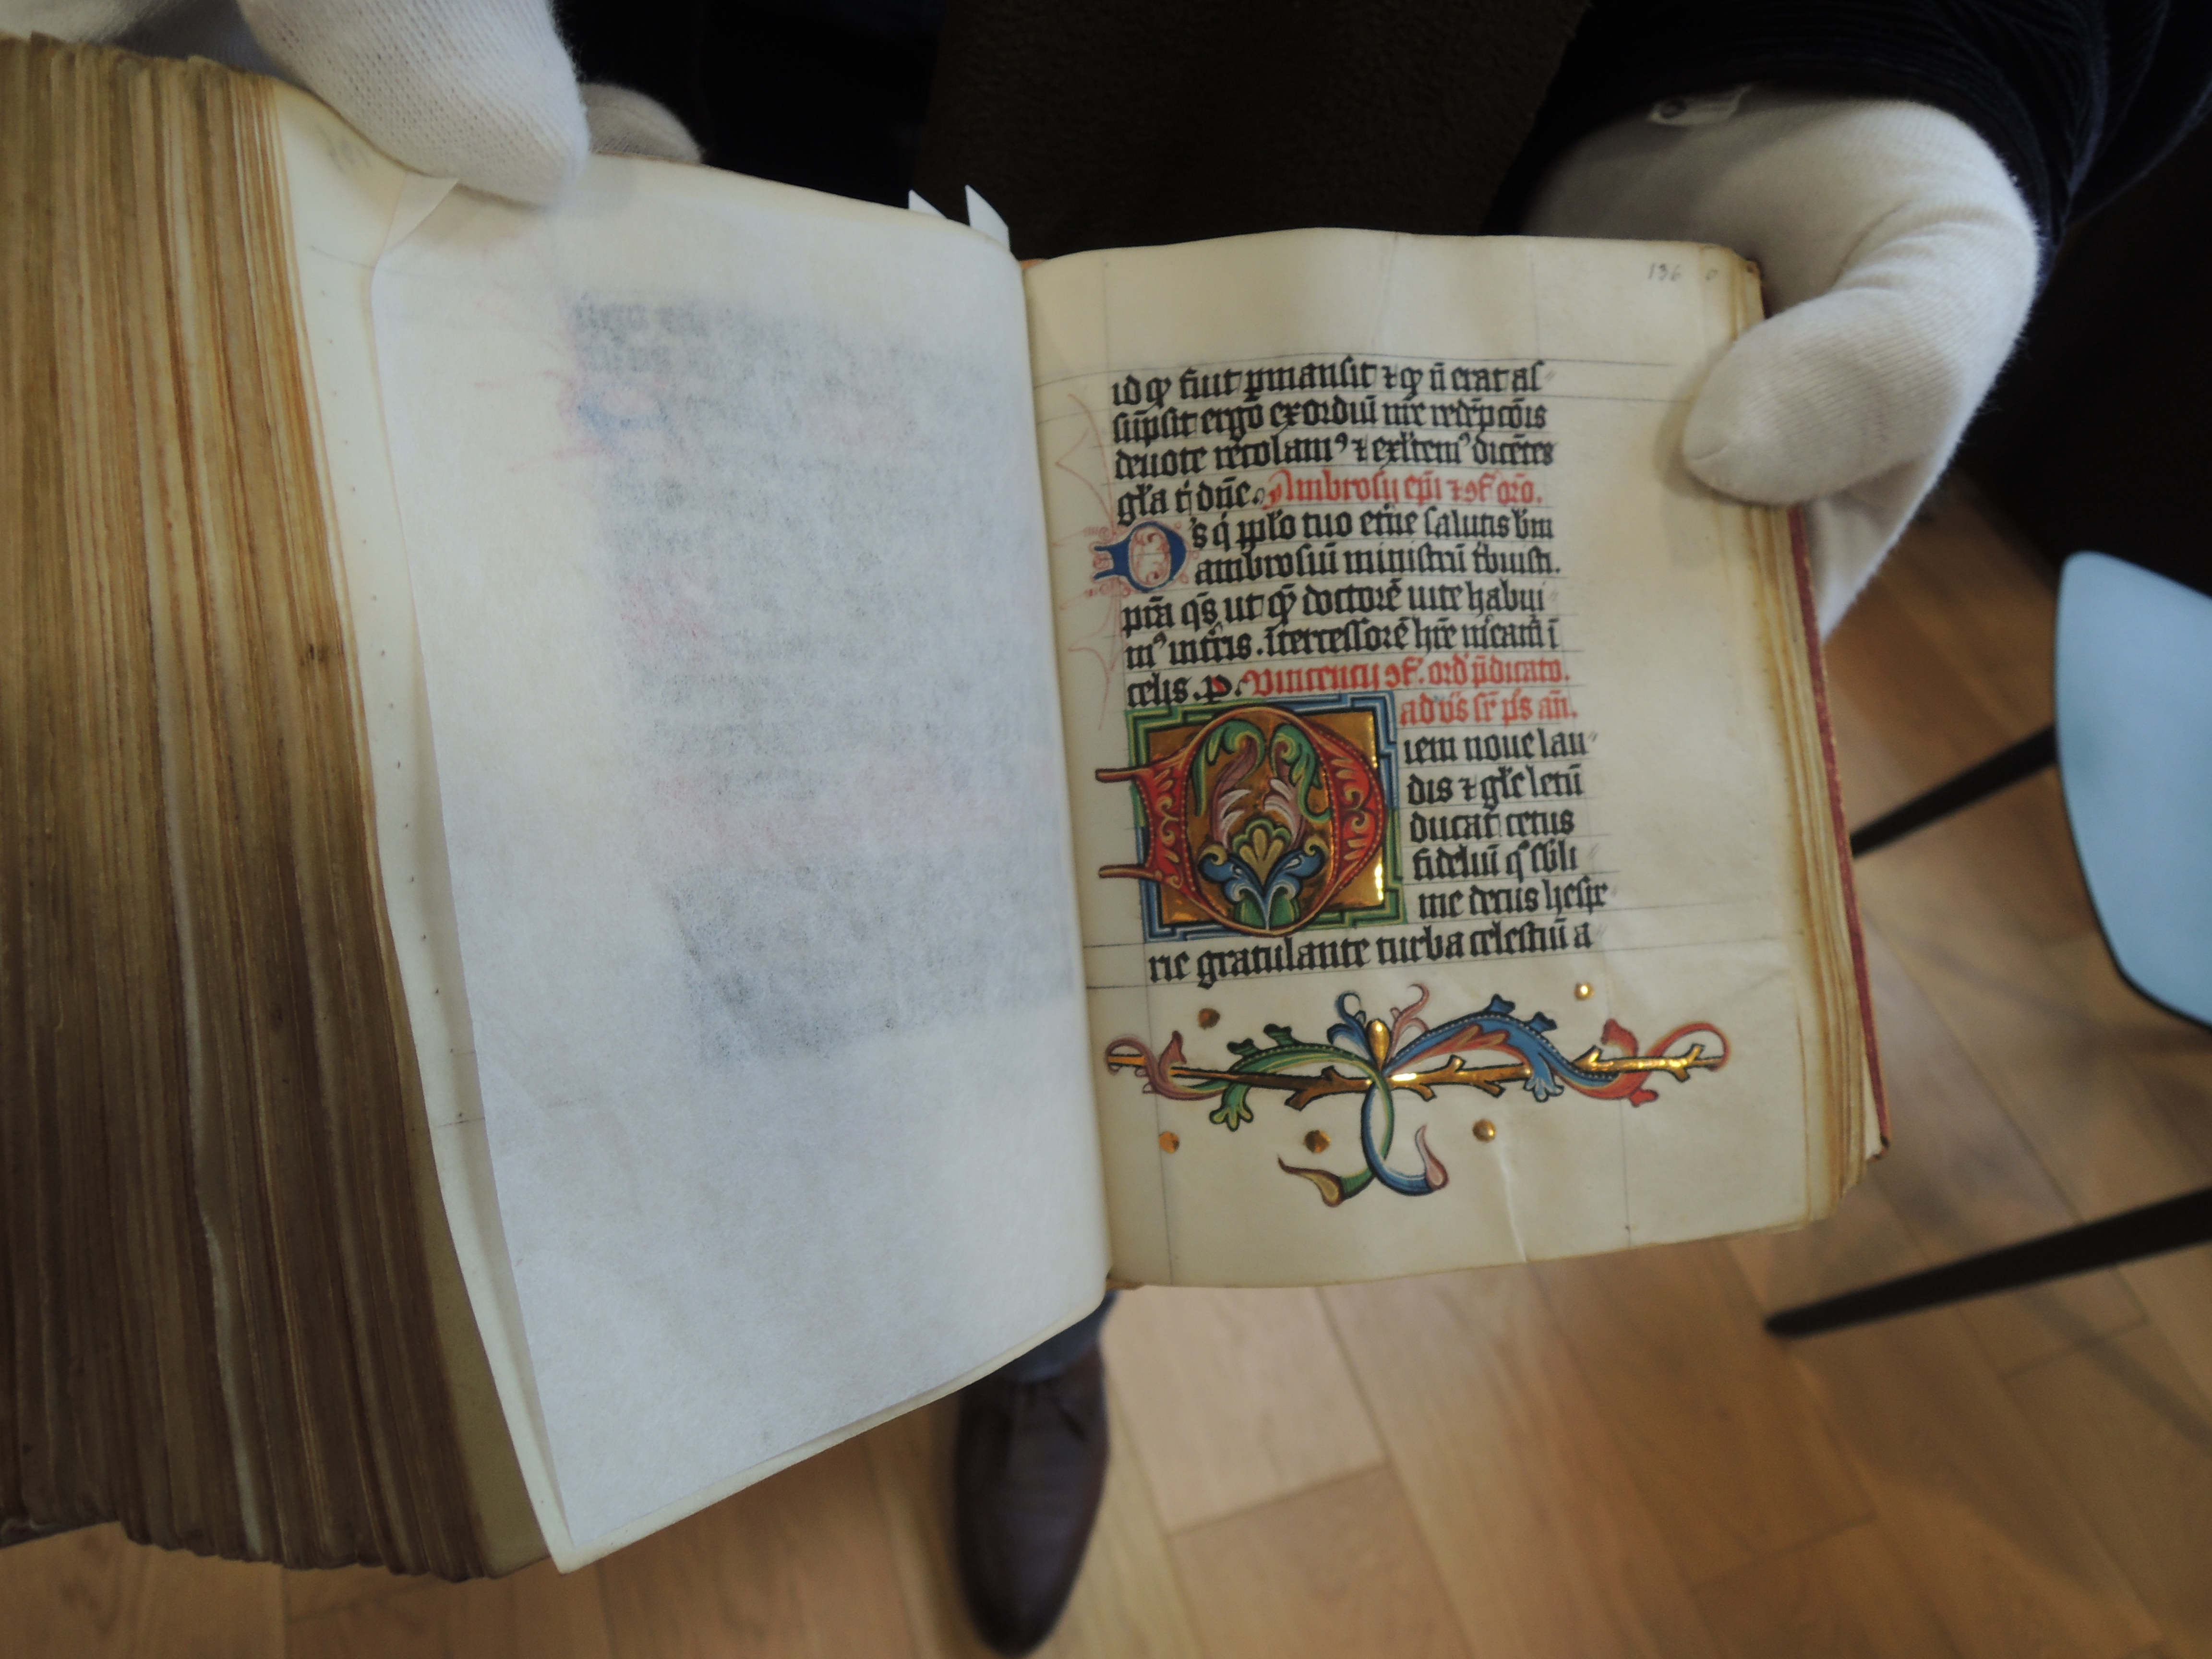 136
id qͥ fuit ꝑmansit ⁊ qͥ nͦ erat as
sūpsit ergo exordiū nr̄e redēpcōis
deuote recolamꝰ ⁊ exl̓temꝰ dicētes
gl̓a t dn̄e. Ambrosij ep̄i ⁊ ꝯf orō.
Ds q ppl̓o tuo et̄ne salutis btm
ambrosiū ministrū t̓buisti.
pr̄a qs̄ ut quē doctorē uite habui
mꝰ in tr̄is. ītercessorē hr̄e m̓eam̓ ī
celis. p. Vincencij ꝯf. ord p̄dicato.
ad vs̄ sr̄ ps̄ an̄.
Diem noue lau
dis ⁊ gl̓e letū
ducat cetus
fideliū qͦ sb̓li
me decus hespe
rie gratulante turba celestiū a